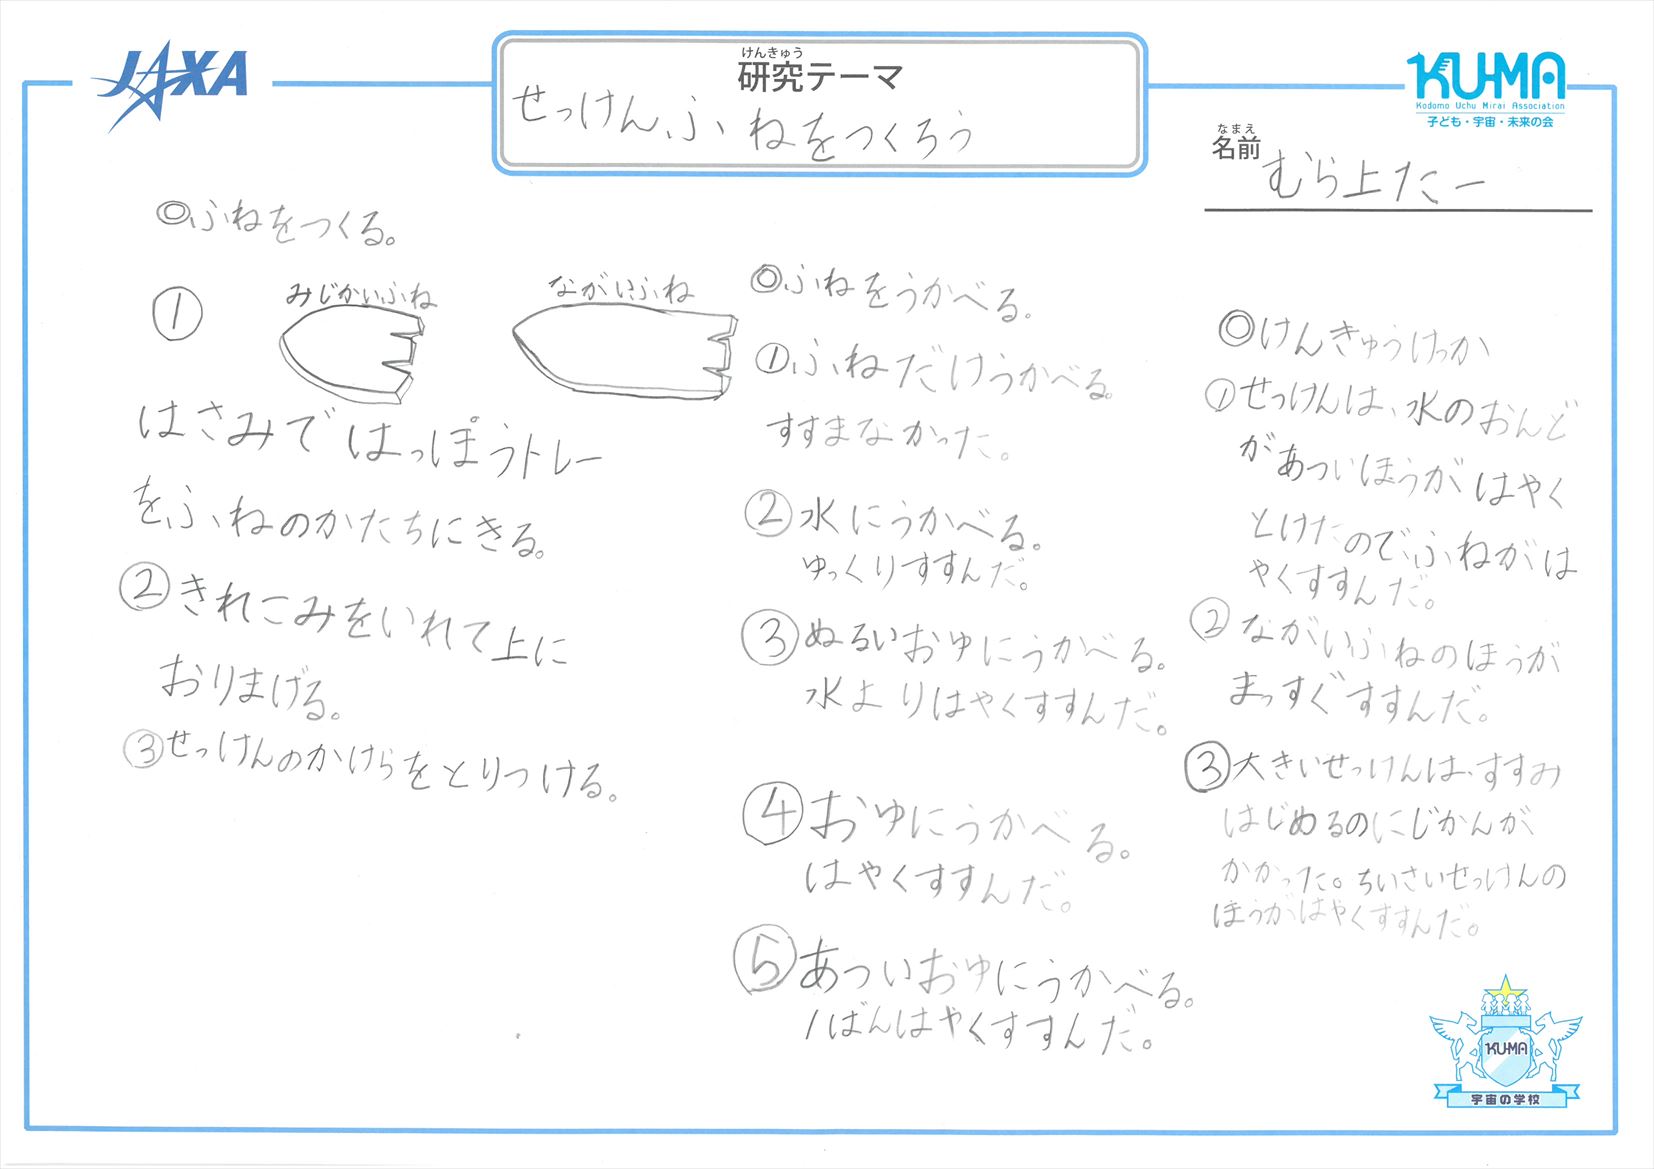 JAXA
けんきゅう
研究テーマ
せっけんふねをつくろう
KU-MA
Kodomo Uchu Mirai Association
子ども・宇宙・未来の会
なまえ
名前
むら上たー
◎ふねをつくる。
①
みじかいふね
ながいふね
はさみではっぽうトレー
をふねのかたちにきる。
②きれこみをいれて上に
おりまげる。
③せっけんのかけらをとりつける。
◎ふねをうかべる。
①ふねだけうかべる。
すすまなかった。
②水にうかべる。
ゆっくりすすんだ。
③ぬるいおゆにうかべる。
水よりはやくすすんだ。
④おゆにうかべる。
はやくすすんだ。
⑤あついおゆにうかべる。
1ばんはやくすすんだ。
◎けんきゅうけっか
①せっけんは、水のおんど
があついほうがはやく
とけたのでふねがは
やくすすんだ。
②ながいふねのほうが
まっすぐすすんだ。
③大きいせっけんは、すすみ
はじめるのにじかんが
かかった。ちいさいせっけんの
ほうがはやくすすんだ。
KU-MA
宇宙の学校